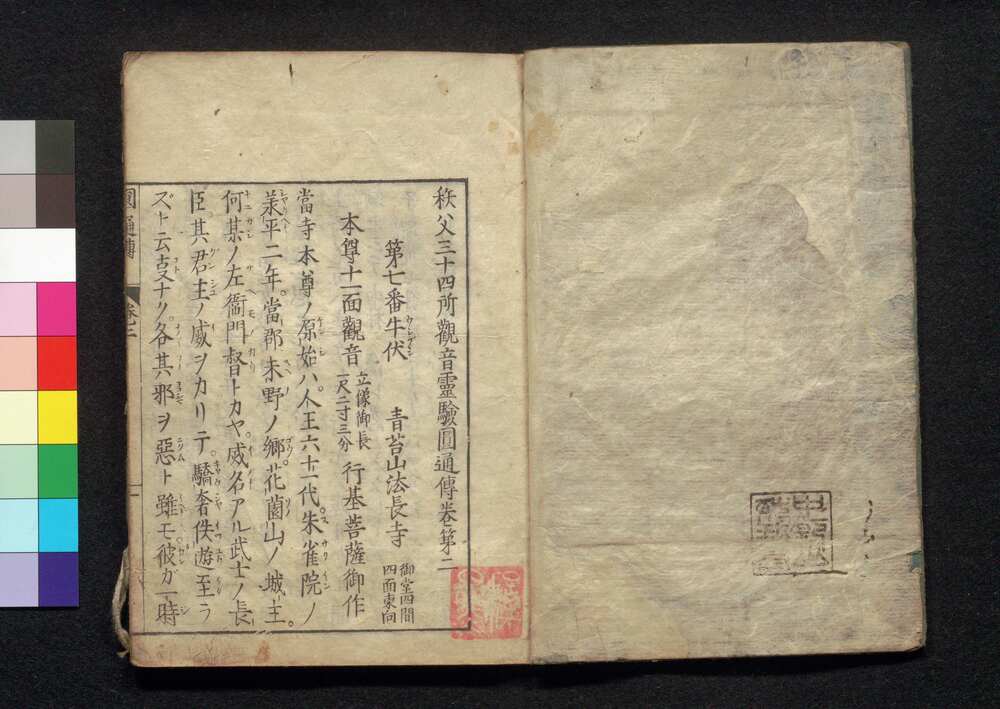 秩父三十四所觀音靈驗圓通傳卷第二
第七番牛伏　青苔山法長寺　御堂四間四面東向
本尊十一面觀音　立像御長一尺二寸三分　行基菩薩御作
當寺本尊ノ原始ハ。人王六十一代。朱雀院ノ
承平二年。當郡末野ノ郷。花薗山ノ城主。
何某ノ左衞門督トカヤ。威名アル武士ノ長
臣。其君主ノ威ヲカリテ。驕奢佚遊至ラ
ズト云支ナク。各其邪ヲ惡ト雖モ。彼ガ一時
圓通傳　卷之二